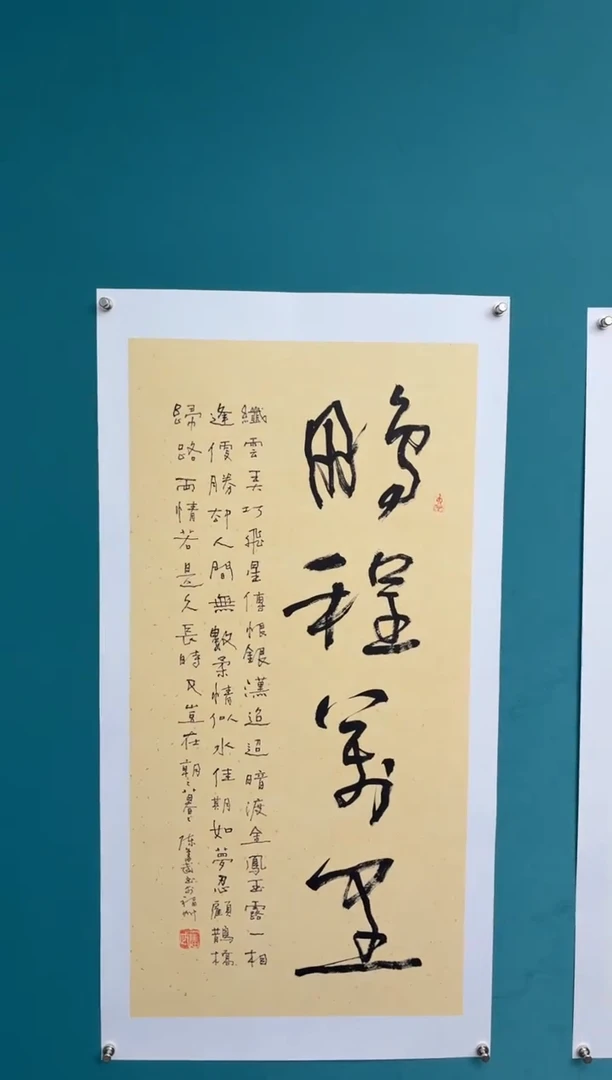 鵬程萬里
纖雲弄巧飛星傳恨銀漢迢迢暗渡金鳳玉露一相
逢便勝却人間無數柔情似水佳期如夢忍顧鵲橋
歸路兩情若是久長時又豈在朝〻暮〻